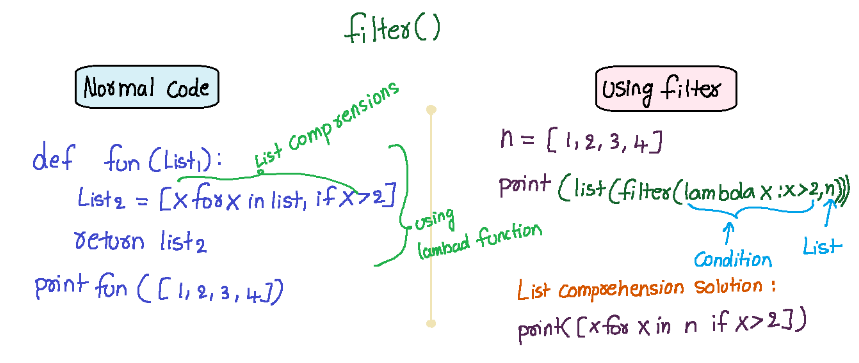 filter()
Normal Code
def fun (List1):
List2 = [x for x in list, if x>2]
return list2
print fun ([1, 2, 3, 4])
List comprensions
using
lambad function
using filter
n = [1, 2, 3, 4]
print (list(filter(lambda x :x>2,n)))
Condition
List
List comprehension solution :
print([x for x in n if x>2])